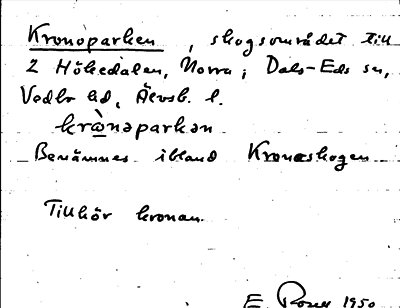 Kronoparken, skogsområdet till
2 Hökedalen, Norra; Dals-Eds sn,
Vedbo hd, Älvsb. l.
krònaparkən
Benämnes ibland Kronoskogen
Tillhör kronan.
E. 1950